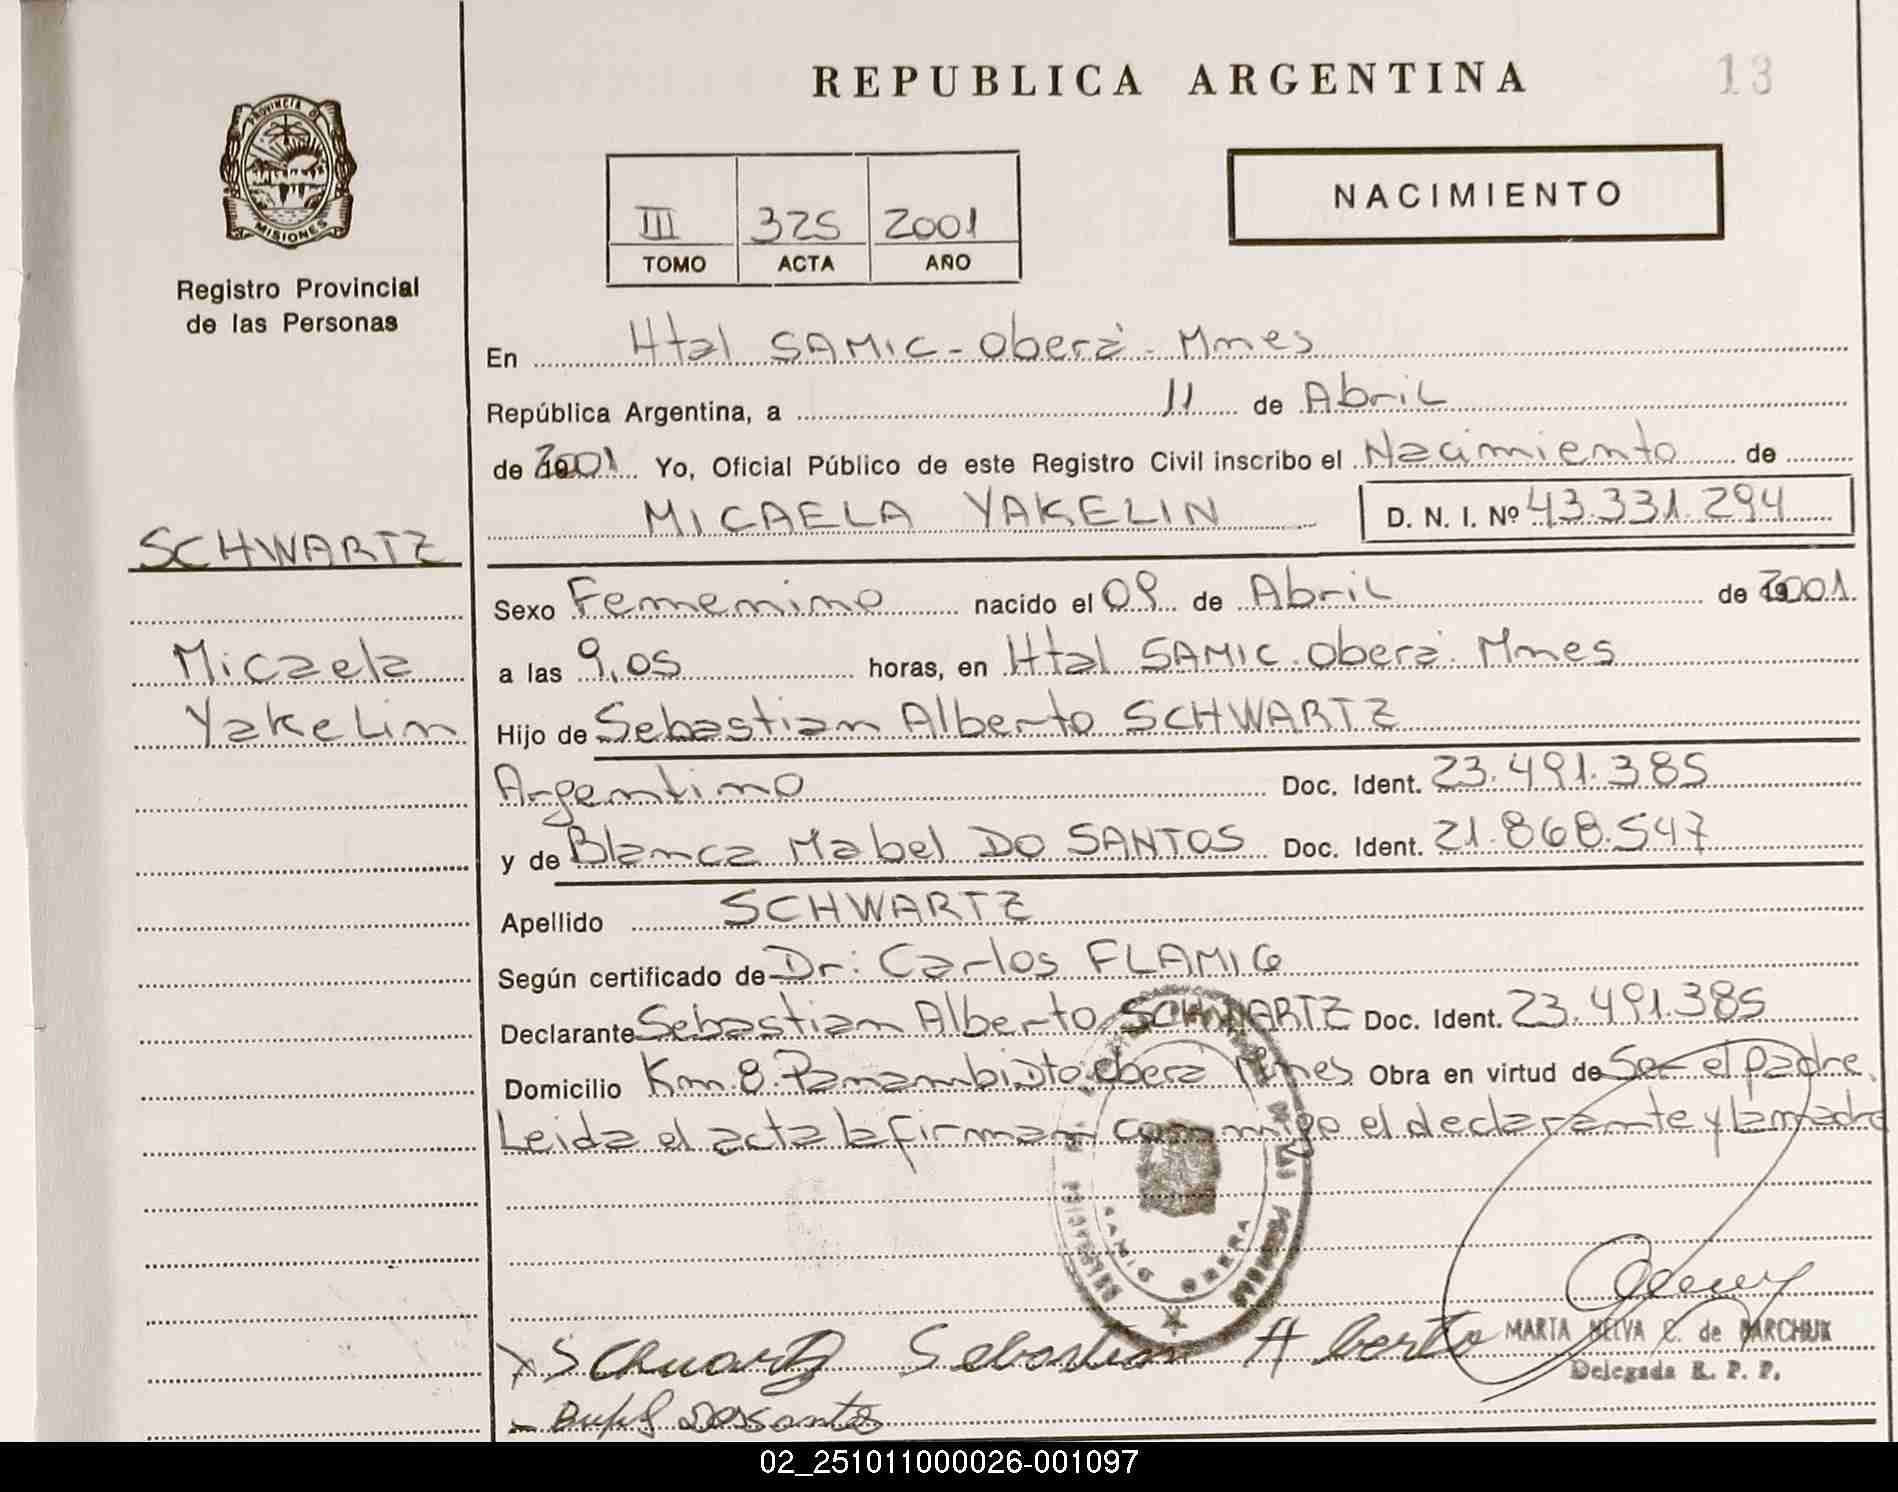 REPUBLICA ARGENTINA
13
PROVINCIA DE MISIONES
Registro Provincial
de las Personas
NACIMIENTO
III 325 2001
TOMO ACTA AÑO
En Htal SAMIC - Oberá - Mnes
República Argentina, a 11 de Abril
de 2001 Yo, Oficial Público de este Registro Civil inscribo el Nacimiento de
MICAELA YAKELIN D. N. I. Nº 43.331.294
SCHWARTZ
Micaela
Yakelin
Sexo Femenino nacido el 09 de Abril de 2001.
a las 9,05 horas, en Htal SAMIC. Oberá. Mnes
Hijo de Sebastian Alberto SCHWARTZ
Argentino Doc. Ident. 23.491.385
y de Blanca Mabel DO SANTOS Doc. Ident. 21.868.547
Apellido SCHWARTZ
Según certificado de Dr: Carlos FLAMIG
Declarante Sebastian Alberto SCHWARTZ Doc. Ident. 23.491.385
Domicilio Km. 8. Panambi Dto. Obera Mnes Obra en virtud de Ser el padre.
Leida el acta la firman conmigo el declarante y la madre
SAMIC OBERA
Schuartz Sebastian Alberto
MARTA NELVA C. de BARCHUK
Delegada R. P. P.
Dossantos
02_251011000026-001097